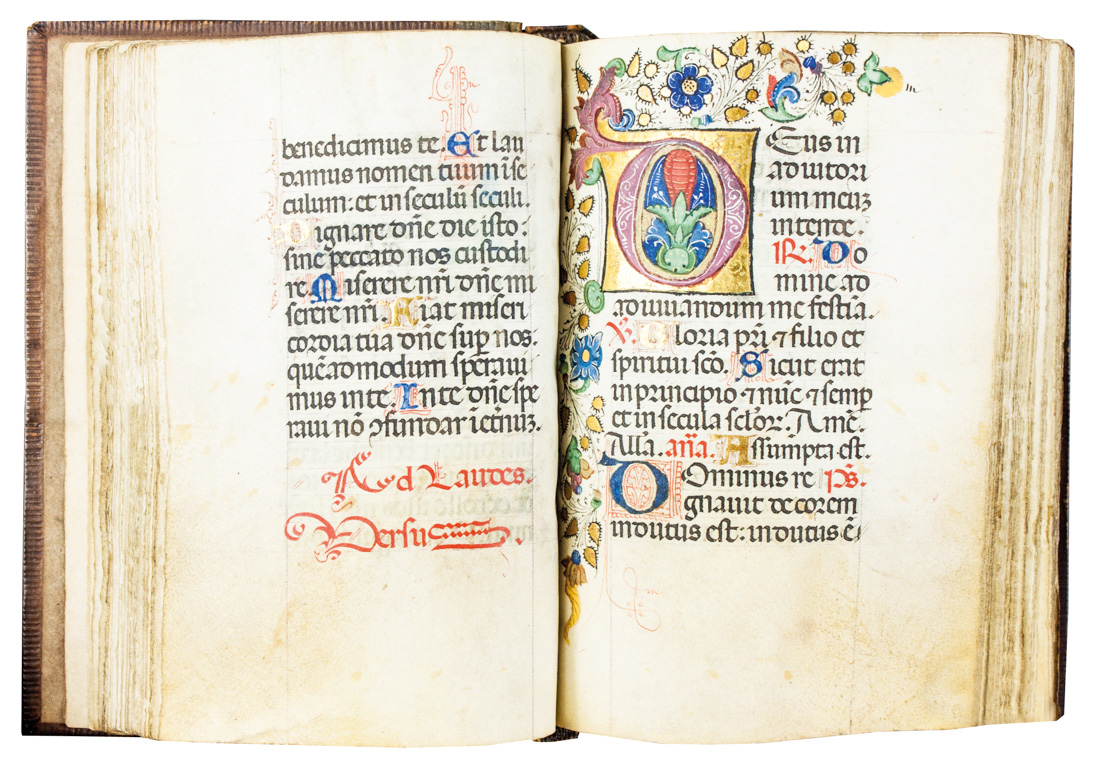 benedicimus te. Et lau
damus nomen tuum ī se
culum: et in seculū seculi.
Dignare dn̄e die isto:
sine peccato nos custodi
re. Miserere nr̄i dn̄e mi
serere nr̄i. Fiat miseri
cordia tua dn̄e sup̄ nos:
quēadmodum speraui
mus in te. In te dn̄e spe
raui nō ꝯfundar ī etnūꝫ.
Ad Laudes.
Versu
Deus in
adiutori
um meuꝫ
intende.
R. Do
mine ad
adiuuandum me festīa.
V. Gloria pr̄i ⁊ filio et
spiritui sc̄o. Sicut erat
in principio ⁊ nūc ⁊ semp̄
et in secula sclōꝝ. Amē.
Alla. an̄a. Assumpta est.
Dominus re ps.
gnauit decorem
indutus est: indutus ē